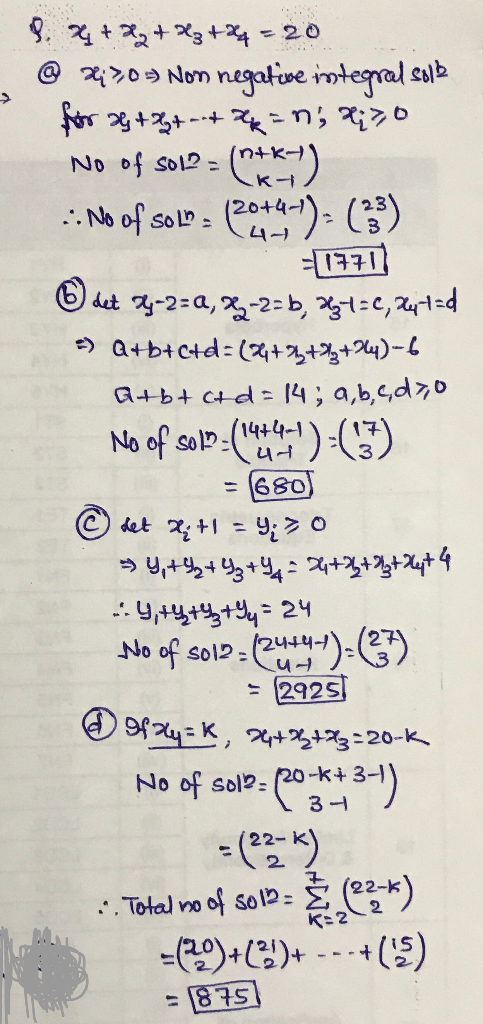 Q. x₁ + x₂ + x₃ + x₄ = 20
ⓐ xᵢ ≥ 0 ⇒ Non negative integral solⁿ
for x₁ + x₂ + --- + xₖ = n ; xᵢ ≥ 0
No of solⁿ = (n+k-1 / k-1)
∴ No of solⁿ = (20+4-1 / 4-1) = (23 / 3)
= 1771
ⓑ Let x₁-2=a, x₂-2=b, x₃-1=c, x₄-1=d
⇒ a+b+c+d = (x₁+x₂+x₃+x₄)-6
a+b+c+d = 14 ; a,b,c,d ≥ 0
No of solⁿ = (14+4-1 / 4-1) = (17 / 3)
= 680
ⓒ Let xᵢ+1 = yᵢ ≥ 0
⇒ y₁+y₂+y₃+y₄ = x₁+x₂+x₃+x₄+4
∴ y₁+y₂+y₃+y₄ = 24
No of solⁿ = (24+4-1 / 4-1) = (27 / 3)
= 2925
ⓓ If x₄ = K, x₁+x₂+x₃ = 20-K
No of solⁿ = (20-K+3-1 / 3-1)
= (22-K / 2)
∴ Total no of solⁿ = Σ_{K=2}^{7} (22-K / 2)
= (20 / 2) + (21 / 2) + --- + (15 / 2)
= 875